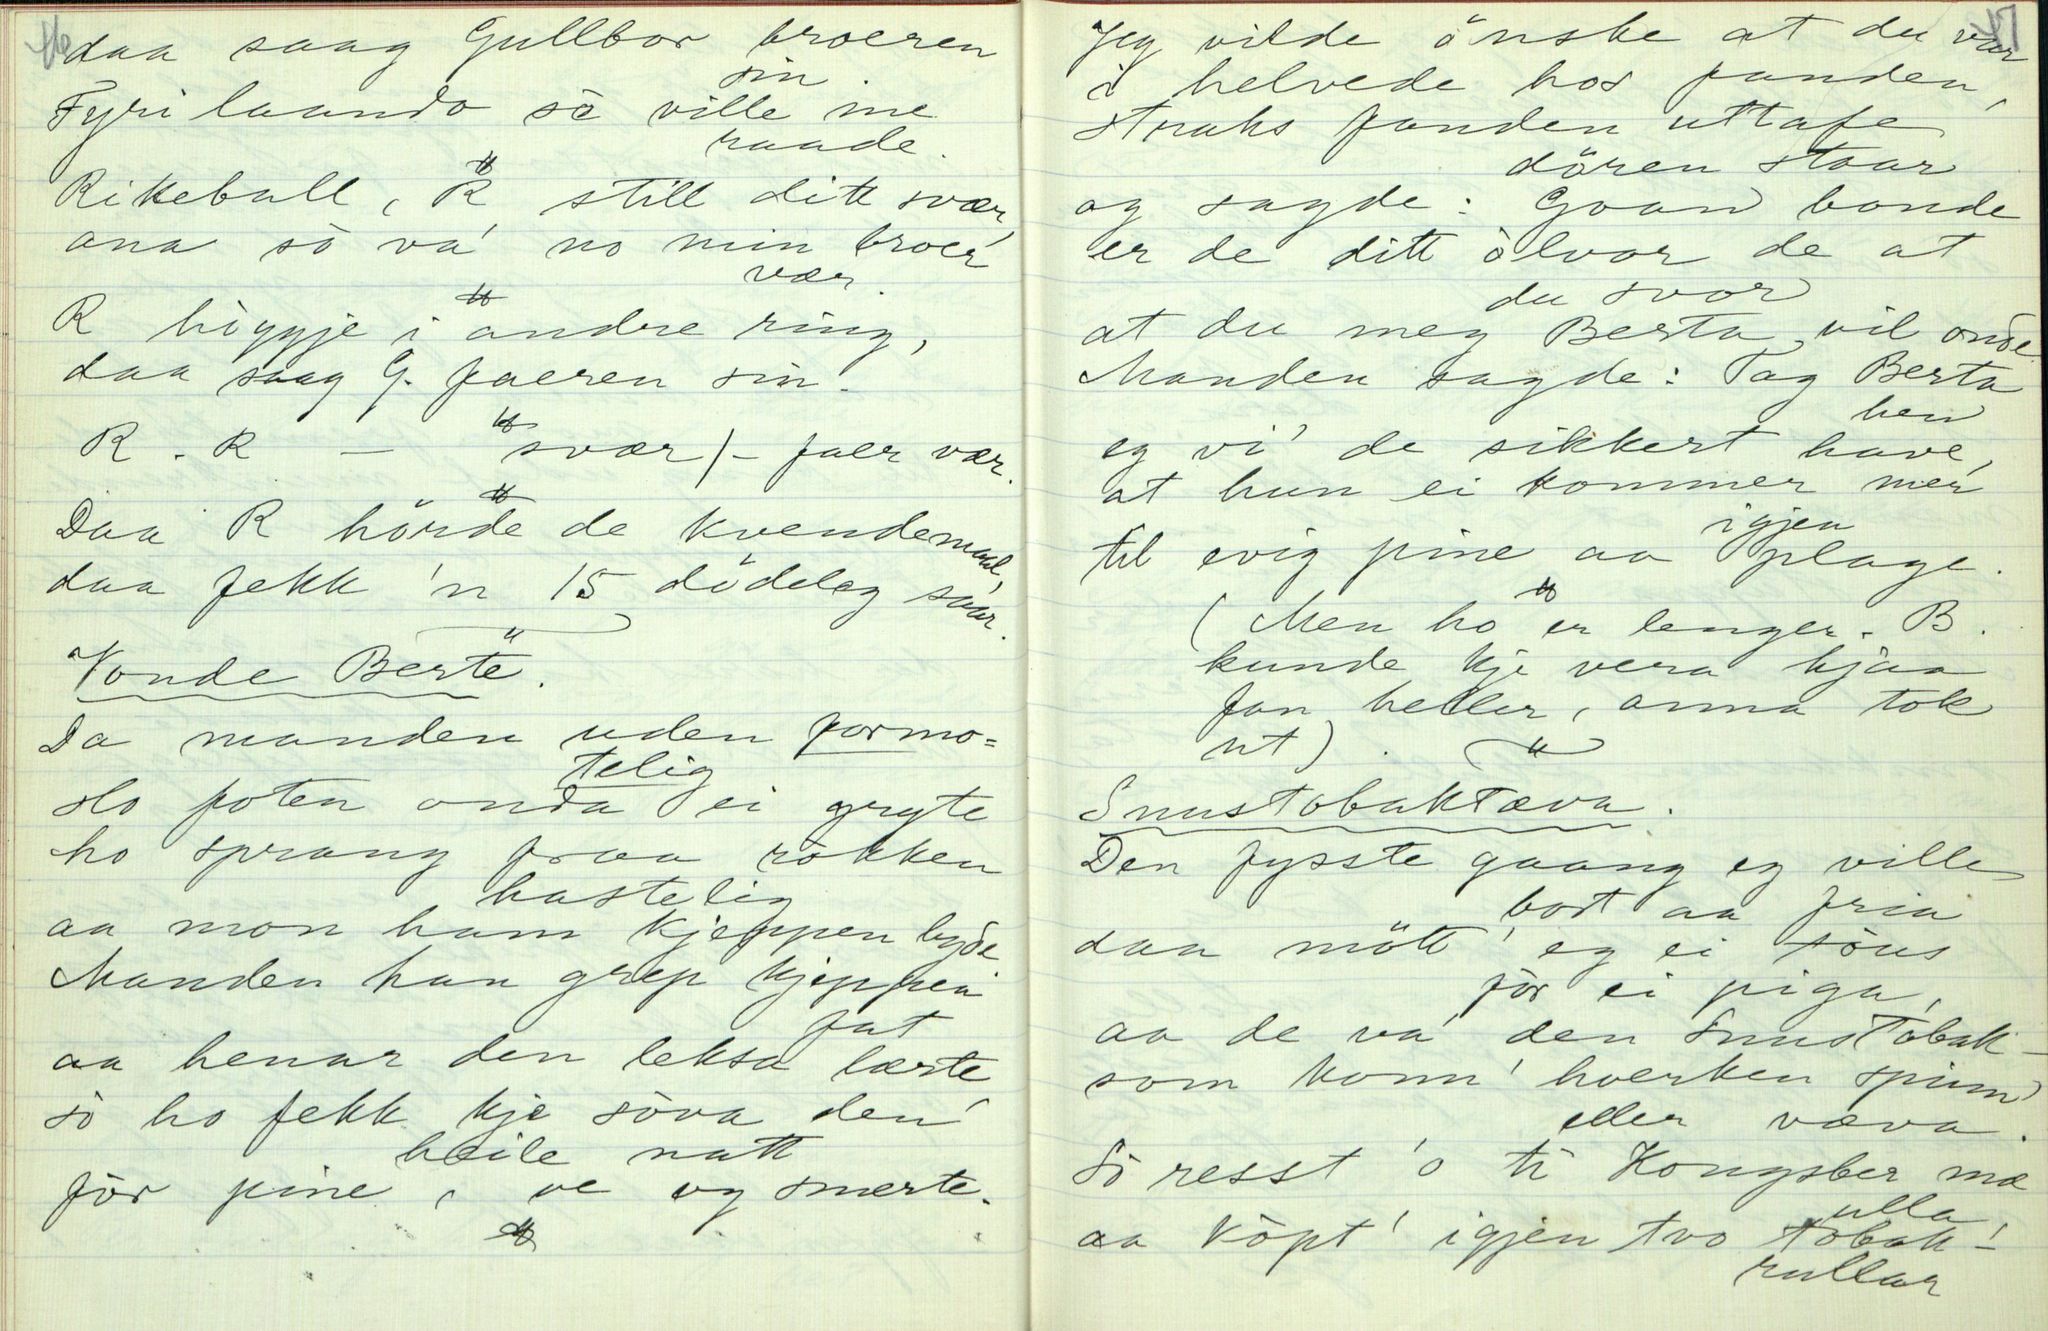 46
daa saag Gullbor broeren
sin.
Fyri laando sò ville me
raade.
Rikeball, R still ditt svær,
ana sò va' no min broer
vær.
R høggje i andre ring,
daa saag G. faeren sin.
R. R — svær /- faer vær.
Daa R hörde de kvendemaal,
daa fekk 'n 15 dödeleg saar.
"
Vonde Berte.
Da manden uden formo=
telig
slo poten onda ei gryte
ho sprang fraa rokken
hastelig
aa mon ham kjeppen byde.
Manden han grep kjeppen
fat
aa henar den leksa lærte
sò ho fekk kje sòva den
heile natt
fòr pine, ve og smerte.
47
Jeg vilde önske at du var
i helvede hos fanden,
straks fanden uttafe
dören staar
og sagde: Goan bonde
er de ditt òlvor de at
du svor
at du meg Berta vil onde
Manden sagde: Tag Berta
hen
eg vi' de sikkert have,
at hun ei kommer mer
igjen
til evig pine aa plage.
(Men ho er lenger. B.
kunde kje vera hjaa
fan heller, anna tok
ut).
"
Snustobaktæva.
Den fysste gaang eg ville
bort aa fria
daa mött' eg ei söus
fòr ei piga,
aa de va' den Snustobak-
som konn' hverken spinn'
eller væva.
Sò resst 'o ti Kongsber mæ
ulla
aa kòpt' igjen tvo tobak-
rullar